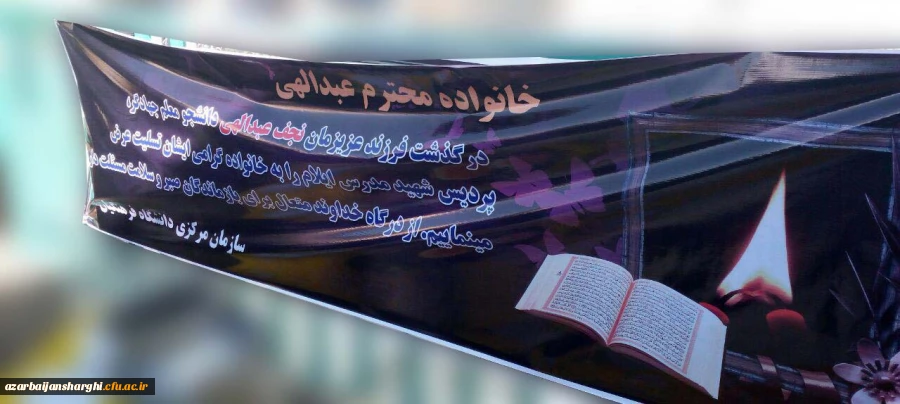 خانواده محترم عبدالهی
در گذشت فرزند عزیزمان نجف عبدالهی دانشجو معلم جهادگر،
پردیس شهید مدرس ایلام را به خانواده گرامی ایشان تسلیت عرض
مینماییم. از درگاه خداوند متعال برای بازماندگان صبر و سلامت مسئلت داریم
سازمان مرکزی دانشگاه فرهنگیان
azarbaijansharghi.cfu.ac.ir